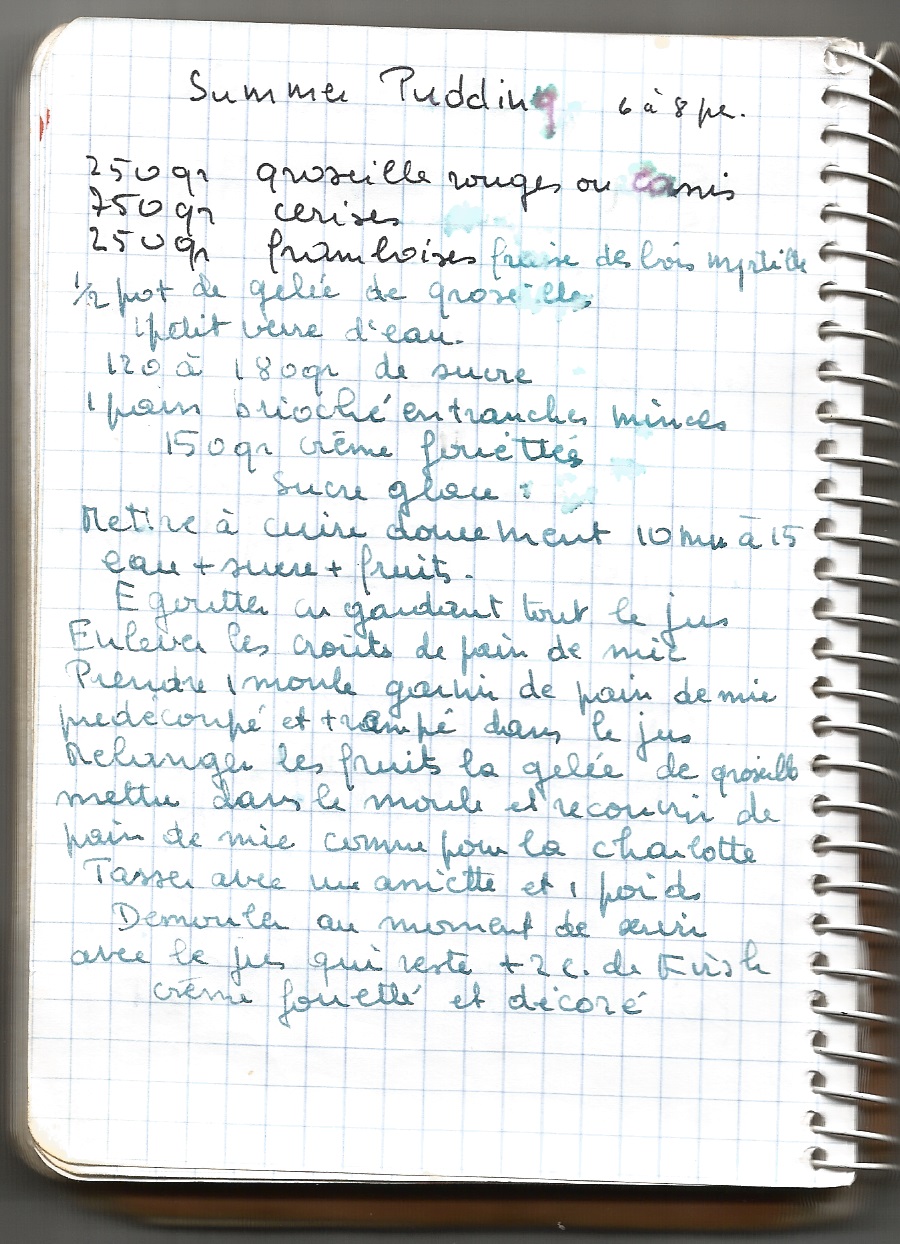 Summer Pudding 6 à 8 per.
250 gr groseille rouges ou cassis
750 gr cerises
250 gr framboises fraise des bois myrtille
1/2 pot de gelée de groseilles
1 petit verre d'eau.
120 à 180 gr de sucre
1 pain brioché en tranches minces
150 gr crème fouettés
Sucre glace :
Mettre à cuire doucement 10 mn à 15
eau + sucre + fruits.
Egoutter en gardant tout le jus
Enlever les croûts de pain de mie
Prendre 1 moule garnir de pain de mie
predécoupé et trempé dans le jus
Mélanger les fruits la gelée de groseille
mettre dans le moule et recouvrir de
pain de mie comme pour la charlotte
Tasser avec une assiette et 1 poids
Démouler au moment de servir
avec le jus qui reste + 2 c. de Kirsh
crème fouetté et décoré